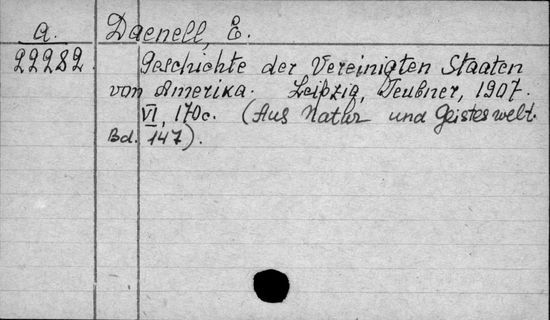 a. Daenell, E.
22282. Geschichte der Vereinigten Staaten
von Amerika. Leipzig, Teubner, 1907.
VI, 170 c. (Aus Natur und Geisteswelt.
Bd. 147).